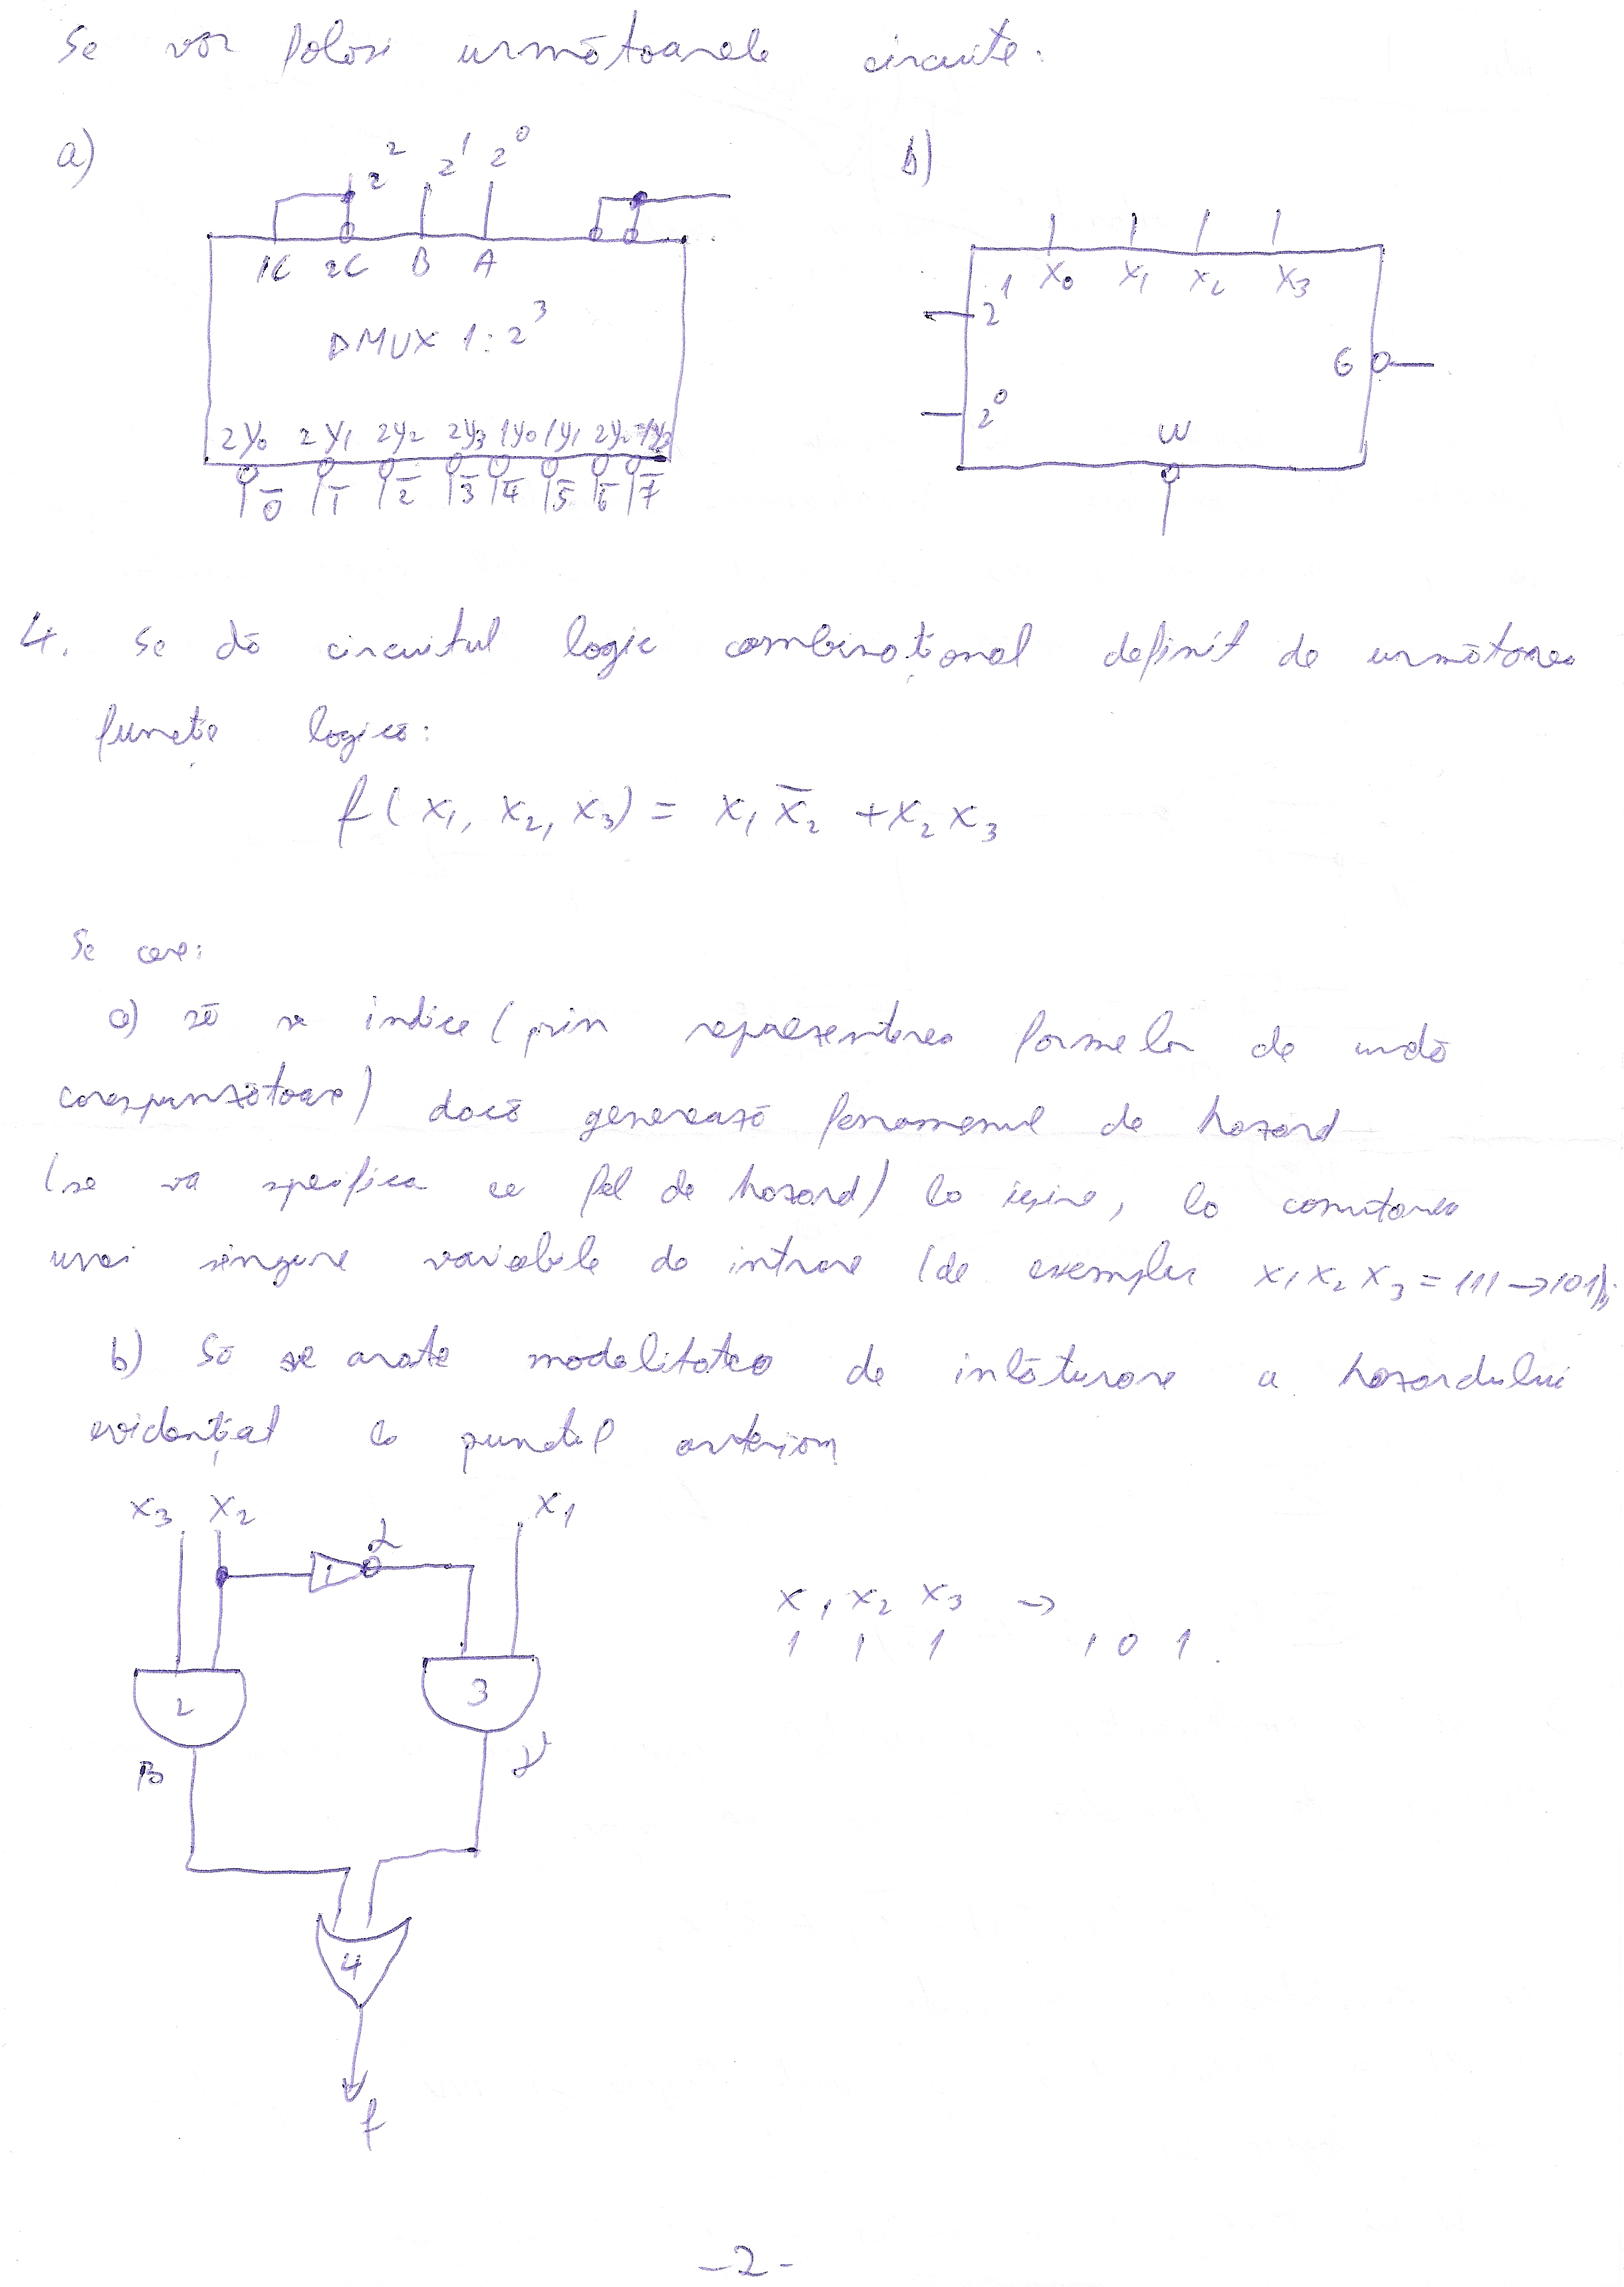 Se vor folosi următoarele circuite:
a) 2² 2¹ 2⁰
b)
1C 2C B A
DMUX 1:2³
2Y₀ 2Y₁ 2Y₂ 2Y₃ 1Y₀ 1Y₁ 2Y₂ 1Y₃
0̅ 1̅ 2̅ 3̅ 4̅ 5̅ 6̅ 7̅
X₀ X₁ X₂ X₃
2¹
G
2⁰
W
4. Se dă circuitul logic combinațional definit de următorea
funcție logică:
f(x₁, x₂, x₃) = x₁x̅₂ + x₂x₃
Se cere:
a) să se indice (prin reprezentarea formelor de undă
corespunzătoare) dacă generează fenomenul de hazard
(se va specifica ce fel de hazard) la ieșire, la comutarea
unei singure variabile de intrare (de exemplu x₁x₂x₃ = 111 → 101);
b) Să se arate modalitatea de înlăturare a hazardului
evidențiat la punctul anterior.
x₃ x₂ x₁
α
1
2 3
β γ
4
f
x₁ x₂ x₃ →
1 1 1 1 0 1
-2-